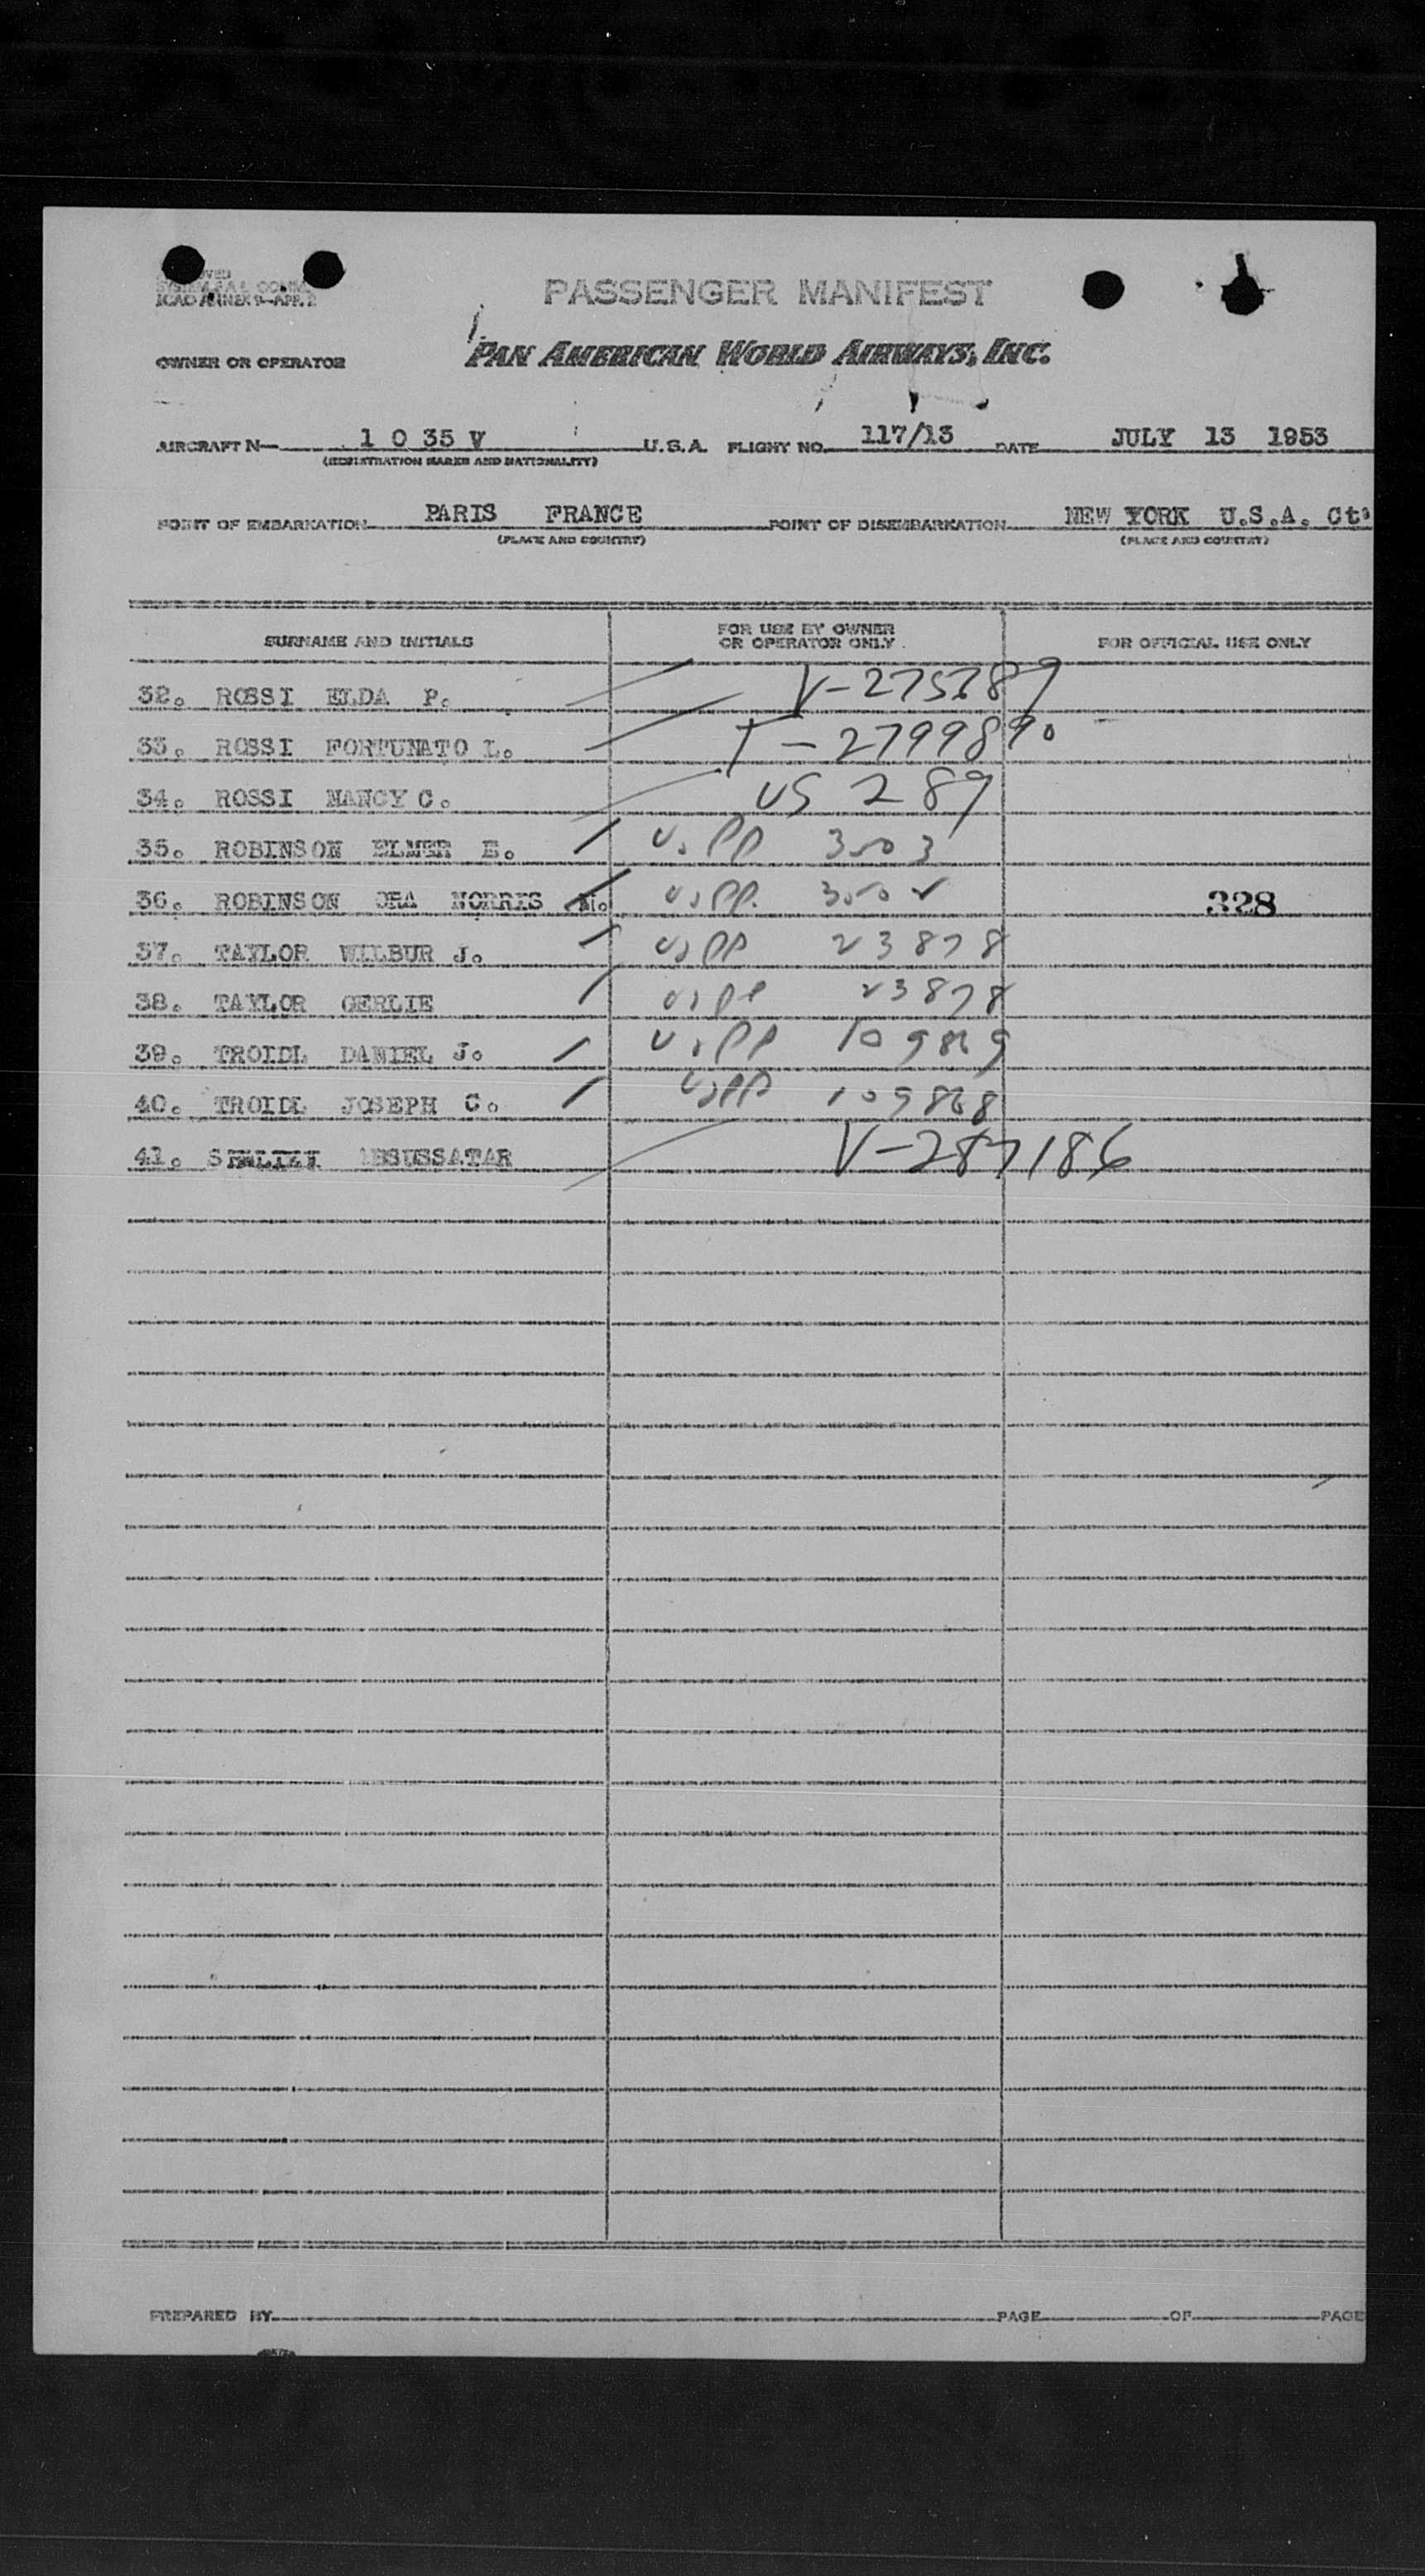 PASSENGER MANIFEST
ICAO ANNEX 9—APP. 2
OWNER OR OPERATOR PAN AMERICAN WORLD AIRWAYS, INC.
AIRCRAFT N— 1 0 35 V U.S.A. FLIGHT NO. 117/13 DATE JULY 13 1953
(REGISTRATION MARKS AND NATIONALITY)
POINT OF EMBARKATION PARIS FRANCE POINT OF DISEMBARKATION NEW YORK U.S.A. Ct'
(PLACE AND COUNTRY) (PLACE AND COUNTRY)
SURNAME AND INITIALS FOR USE BY OWNER OR OPERATOR ONLY FOR OFFICIAL USE ONLY
32. ROSSI ELDA P. V-275789
33. ROSSI FORTUNATO L. T-2799890
34. ROSSI NANCY C. US 289
35. ROBINSON ELMER E. USPP 3503
36. ROBINSON ORA NORRIS M. USPP. 3502 328
37. TAYLOR WILBUR J. USPP 23878
38. TAYLOR GERLIE USPP 23878
39. TROIDL DANIEL J. USPP 109869
40. TROIDL JOSEPH C. USPP 109868
41. V-287186
PREPARED BY PAGE OF PAGE